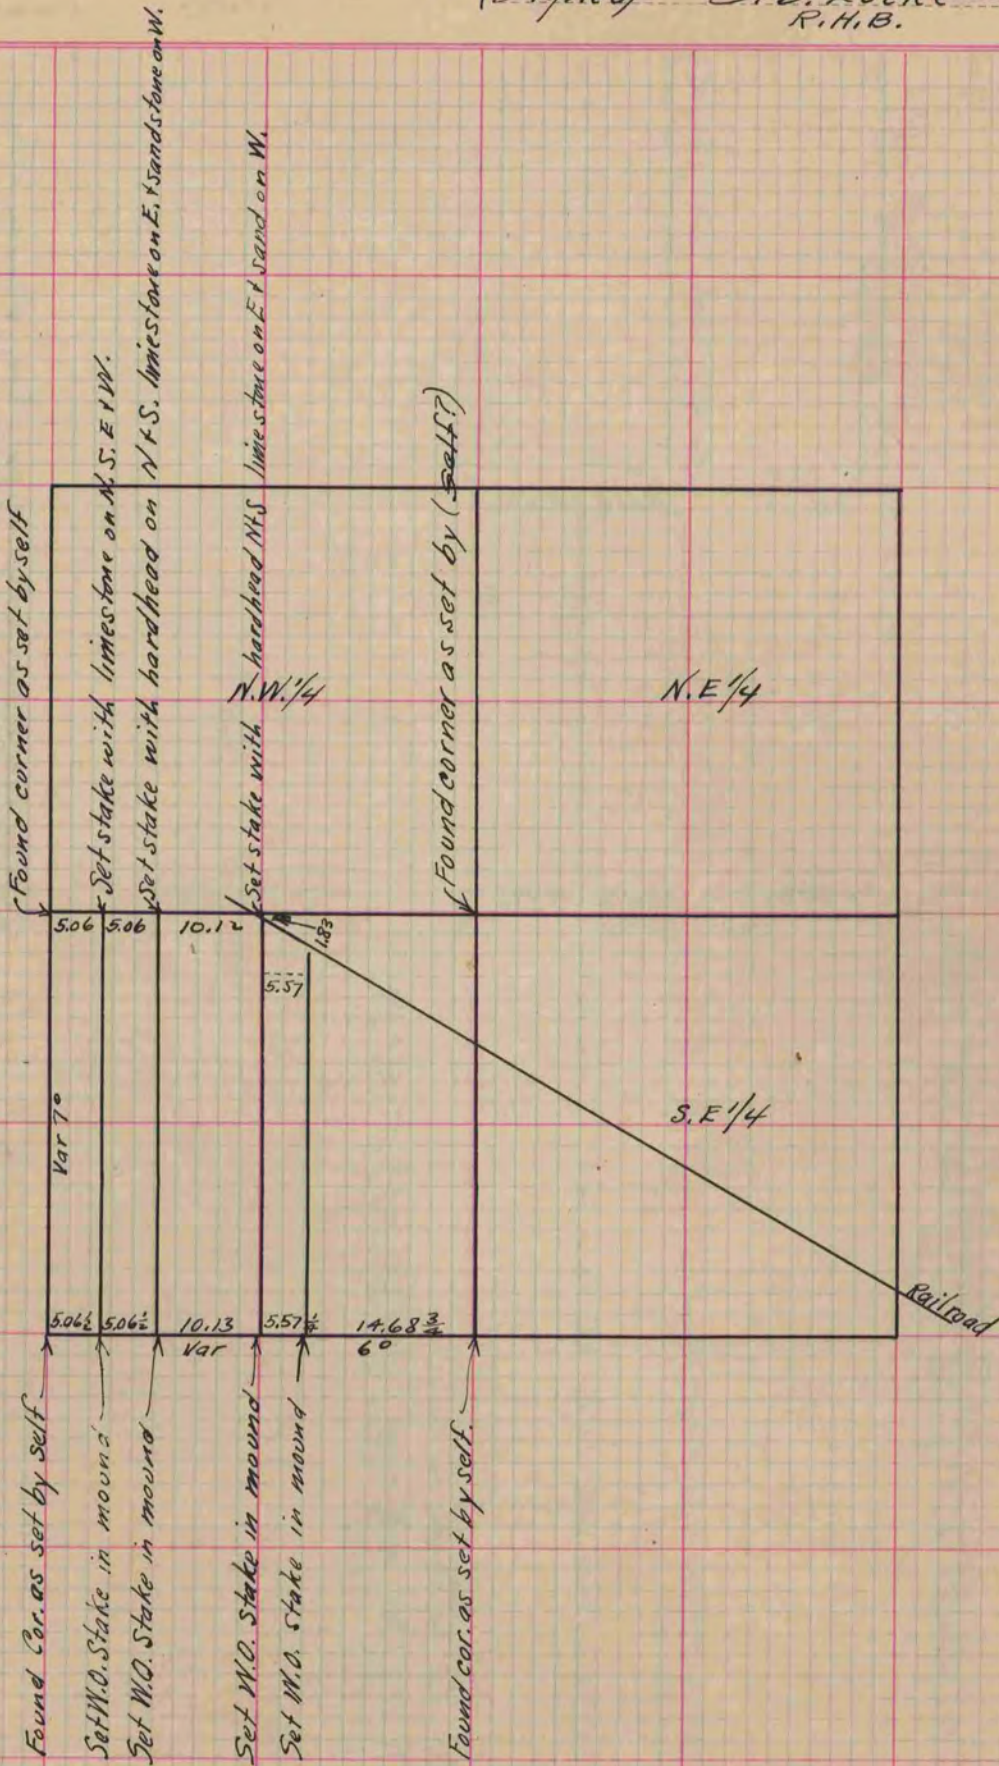 R.H.B.
Found corner as set by self
Set stake with limestone on N.S. E & W.
Set stake with hardhead on N & S. limestone on E. & sandstone on W.
Set stake with hardhead N & S limestone on E & sand on W.
Found corner as set by (self?)
N.W. 1/4
N.E 1/4
5.06
5.06
10.12
1.83
5.57
Var 7°
S.E 1/4
Railroad
5.06½
5.06½
10.13
5.57¼
14.68¾
Var
6°
Found Cor. as set by self
Set W.O. Stake in mound
Set W.O. Stake in mound
Set W.O. Stake in mound
Set W.O. Stake in mound
Found cor. as set by self.